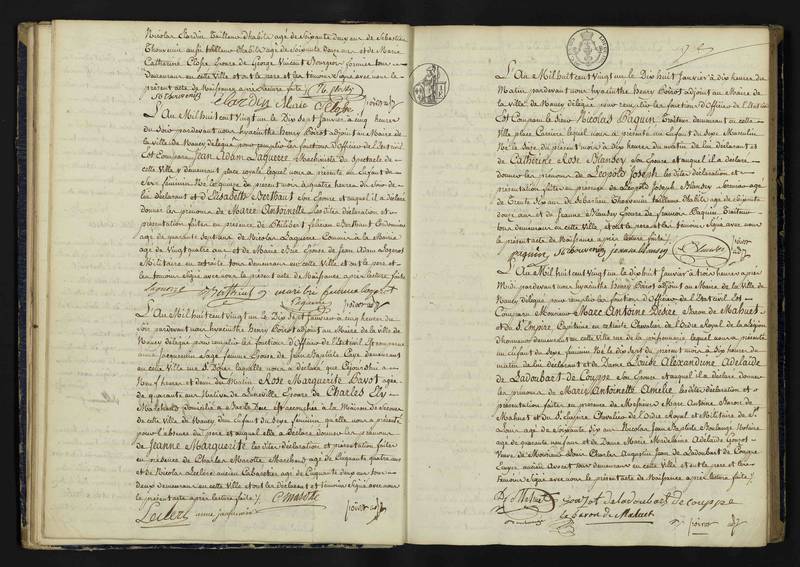 Nicolas Clardin Tailleur d'habits agé de Soixante deux ans de Sébastien
Thouvenin aussi tailleur d'habits agé de Soixante douze ans et de Marie
Catherine Clospe Epouse de George Vincent Bourgeois fermier tous
demeurant en cette Ville et ont le pere et les temoins Signé avec nous le
présent acte de Naissance après Lecture faite
St thouvenin Clardin Marie Closse poirot adj
L'An Mil huit cent Vingt un le Dix Sept Janvier à cinq heures
du Soir pardevant nous hyacinthe Henry Poirot adjoint au Maire de
la ville de Nancy délégué pour remplir les fonctions d'Officier de l'Etat civil
Est Comparu Jean Adam Laguerre Machiniste du Spectacle de
cette Ville y demeurant place royale lequel nous a présenté un Enfant du
Sexe féminin Né le jour de present mois à quatre heures du Soir de
lui déclarant et d'Elisabeth Berthaut Son Epouse et auquel il a déclaré
donner les prénoms de Marie Antoinette les dites déclaration et
présentation faites en présence de Philibert Félicien Berthaut
agé de quarante Sept ans de Nicolas Laguerre Commis à la Mairie
agé de Vingt quatre ans et de Marie Epouse de Jean Adam
Militaire en retraite tous demeurant en cette Ville et ont le pere et
les temoins signé avec nous le présent acte de Naissance après lecture faite
poirot adj
L'An Mil huit cent Vingt un le Dix Sept Janvier à cinq heures du
Soir pardevant nous hyacinthe Henry Poirot adjoint au Maire de la ville de
Nancy délégué pour remplir les fonctions d'Officier de l'Etat civil Est comparue
anne Jacquemin Sage femme Epouse de Jean Baptiste demeurant
en cette Ville rue St. Dizier laquelle nous a déclaré que Cejourd'hui à
Neuf heures et demi du Matin Rose Marguerite Bavot agée
de quarante ans Native de Lunéville Epouse de Charles Ely
Marchand domicilié à Sarre Est accouchée à la Maison de Secours
de cette Ville de Nancy d'un Enfant du Sexe féminin qu'elle nous a présenté
pour l'absence du pere et auquel elle a déclaré donner les prénoms
de Jeanne Marguerite les dites déclaration et présentation faites
en présence de Charles Marotte Marchand agé de Cinquante quatre ans
et de Nicolas Leclerc ancien Cabaretier agé de Cinquante deux ans tous
deux demeurant en cette Ville et ont les déclarant et témoins Signé avec nous
le présent acte après lecture faite
C marotte
Leclerc anne jacquemin poirot adj
L'An Mil huit cent vingt un le Dix huit Janvier à dix heures du
Matin pardevant nous hyacinthe Henry Poirot adjoint au Maire de
la ville de Nancy délégué pour remplir les fonctions d'Officier de l'Etat civil
Est Comparu le Sieur Nicolas Paquin Traiteur demeurant en cette
Ville place Carriere lequel nous a présenté un Enfant du Sexe Masculin
Né le Seize du présent mois à dix heures du matin de lui déclarant et
de Catherine Rose Blansey Son Epouse et auquel il a déclaré
donner les prénoms de Léopold Joseph les dites déclaration et
présentation faites en présence de Léopold Joseph Blansey agé
de Trente Six ans de Sébastien Thouvenin tailleur d'habits agé de Soixante
douze ans et de Jeanne Blansey Epouse de François Paquin Traiteur
demeurant en cette Ville et ont le pere et les temoins Signé avec nous
le présent acte de Naissance après lecture faite
paquin St thouvenin jeanne blansey poirot adj
L'An Mil huit cent Vingt un le dix huit Janvier à trois heures après
Midi pardevant nous hyacinthe Henry Poirot adjoint au Maire de la Ville de
Nancy délégué pour remplir les fonctions d'Officier de l'Etat civil Est
Comparu Monsieur Marc Antoine Desré Baron de Mahuet
et du St. Empire Capitaine en retraite Chevalier de l'Ordre Royal de la Légion
d'honneur demeurant en cette Ville rue de la lequel nous a présenté
un Enfant du Sexe féminin Né le dix Sept du présent mois à dix heures du
matin de lui déclarant et de Dame Louise Alexandrine Adelaide
de Ladoubart de Couppe Son Epouse et auquel il a déclaré donner
les prénoms de Marie Antoinette Amélie les dites déclaration et
présentation faites en présence de Monsieur Marc Antoine Baron de
Mahuet et du St. Empire Chevalier de l'Ordre Royal et Militaire de St.
Louis agé de Soixante dix ans Nicolas Jean Baptiste Boulange Notaire
agé de quarante neuf ans et de Dame Marie Madelaine Adelaide
Veuve de Monsieur Louis Charles Augustin Jean de Ladoubart de Couppe
demeurant en cette Ville et ont le pere et les
temoins Signé avec nous le présent acte de Naissance après lecture faite
deladoubart decouppe
le baron de Mahuet poirot adj